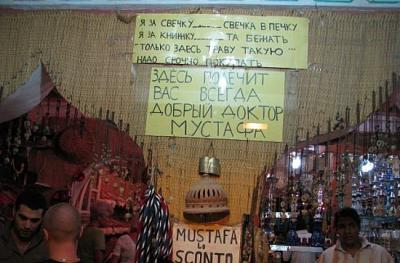 Я ЗА СВЕЧКУ........ СВЕЧКА В ПЕЧКУ
Я ЗА КНИЖКУ........ ТА БЕЖАТЬ
"ТОЛЬКО ЗДЕСЬ ТРАВУ ТАКУЮ"
НАДО СРОЧНО ПОКУПАТЬ
ЗДЕСЬ ПОЛЕЧИТ
ВАС ВСЕГДА
ДОБРЫЙ ДОКТОР
МУСТАФА
MUSTAFA
Lo
SCONTO